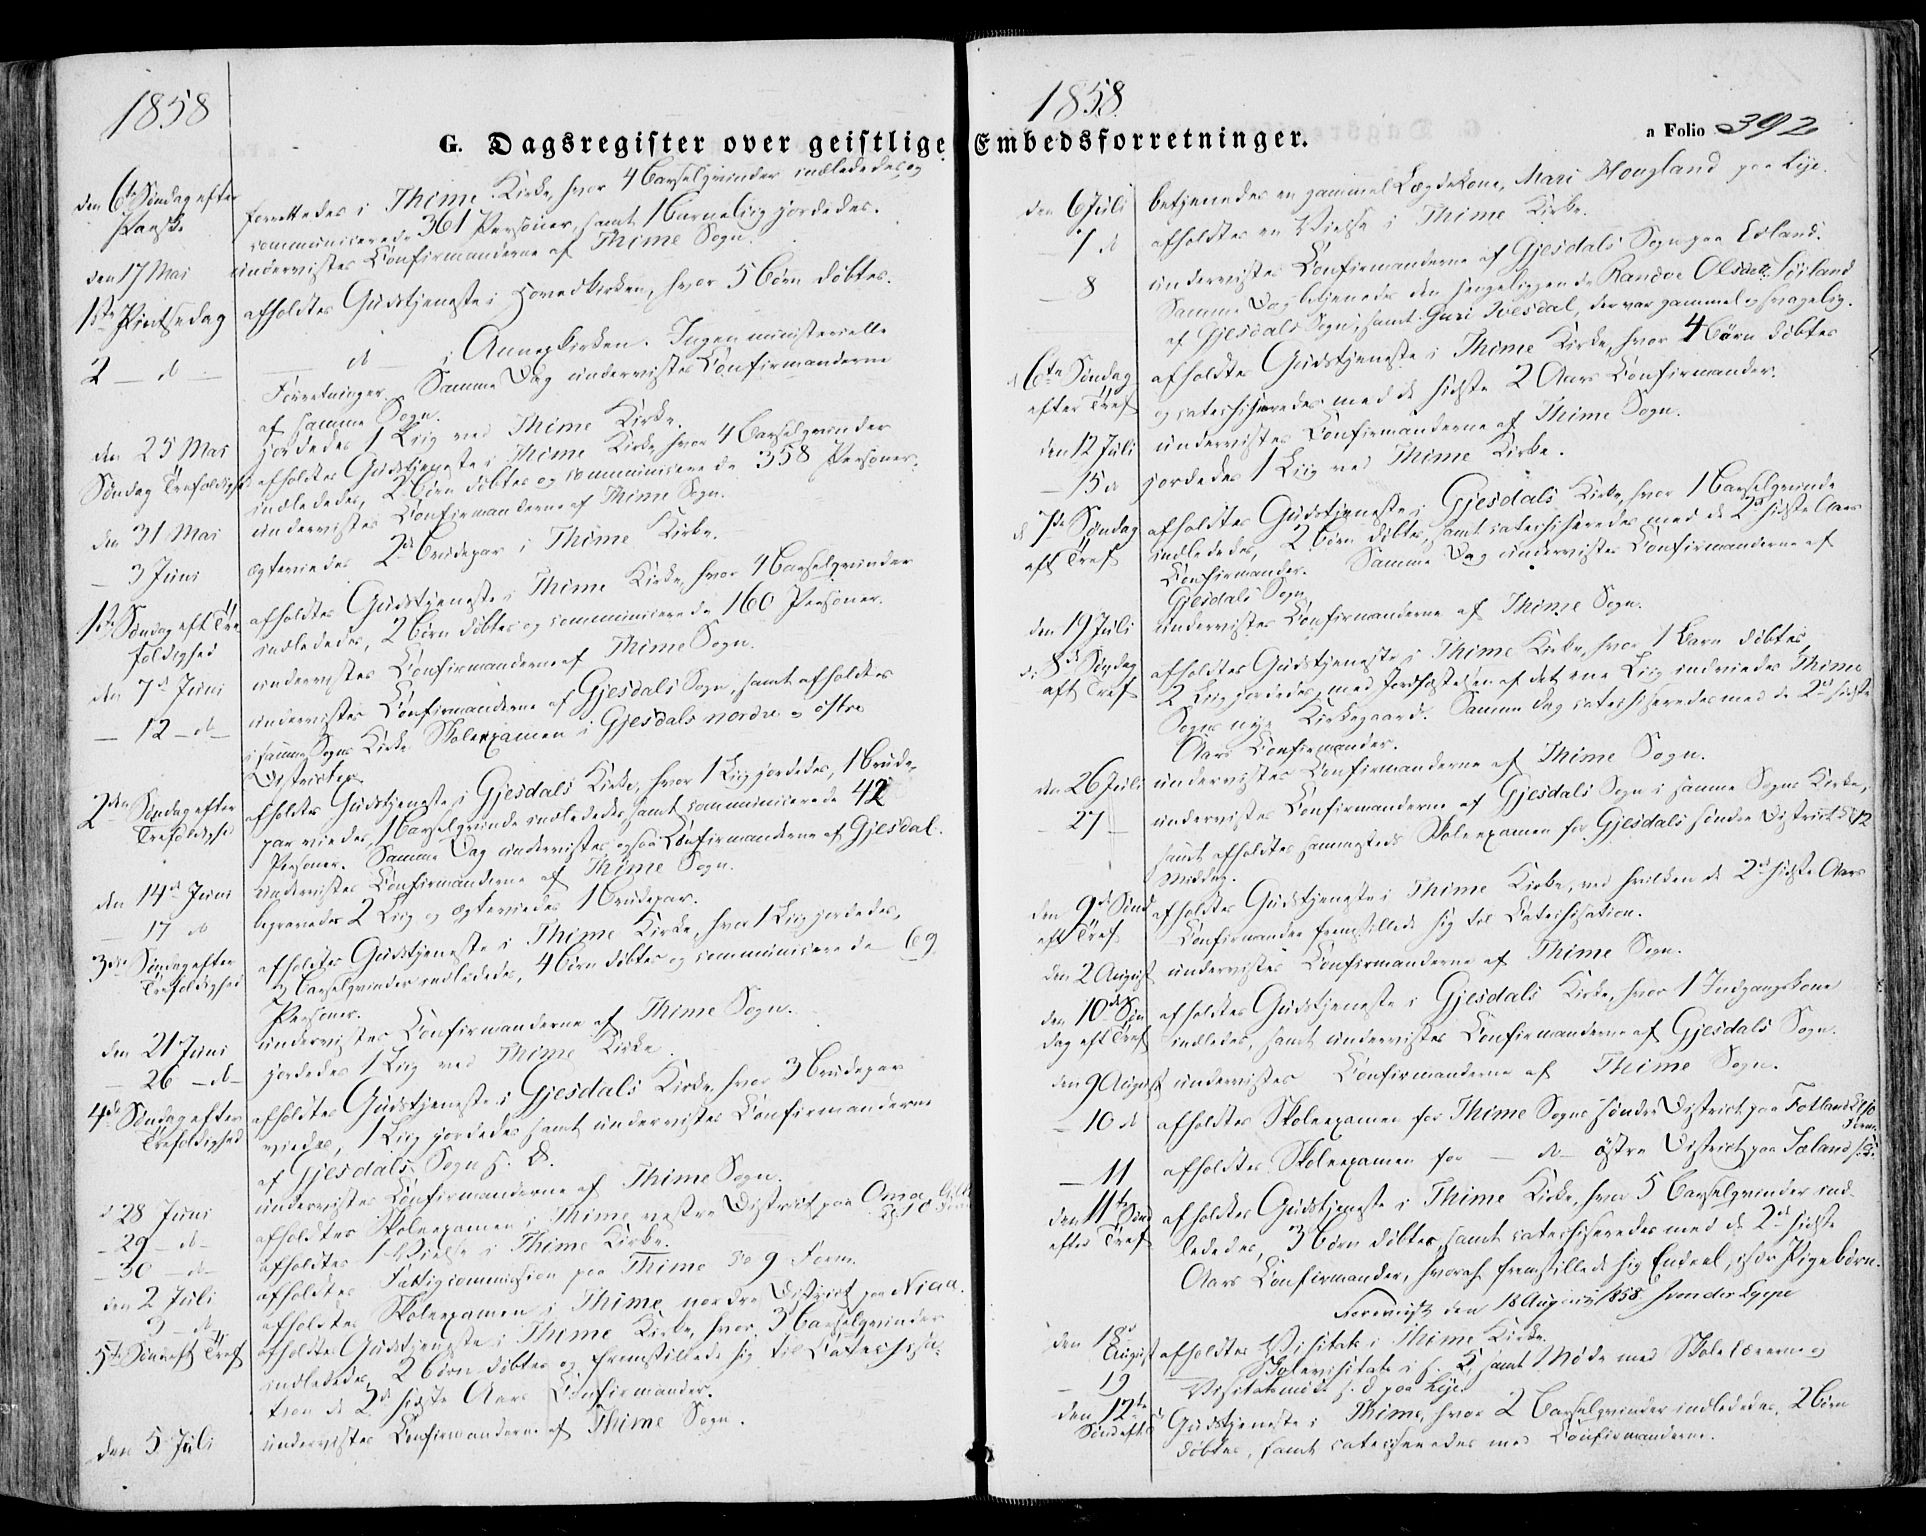 1858
G. Dagsregister over geistlige
den 6te Søndag efter
Paaske
forrettedes i Thime Kirke, hvor 4 Barselqvinder indlededes, og
communicerede 361 Personer, samt 1 Barneliig jordedes.
den 17 Mai undervistes Confirmanderne af Thime Sogn.
1ste Pintsedag afholdtes Gudstjeneste i Hovedkirken, hvor 5 Børn døbtes.
2 — d — — d i Annexkirken. Ingen ministerielle
Forretninger. Samme Dag undervistes Confirmanderne
af samme Sogn.
den 25 Mai jordedes 1 Liig ved Thime Kirke.
Søndag Trefoldighed afholdtes Gudstjeneste i Thime Kirke, hvor 4 Barselqvinder
indlededes, 2 Børn døbtes og communicerede 358 Personer.
den 31 Mai undervistes Confirmanderne af Thime Sogn.
— 3 Juni ægteviedes 2de Brudepar i Thime Kirke.
1ste Søndag eft Tre
foldighed
afholdtes Gudstjeneste i Thime Kirke, hvor 4 Barselqvinder
indlededes, 2 Børn døbtes og communicerede 160 Personer.
den 7de Juni undervistes Confirmanderne af Thime Sogn.
— 12 — d — undervistes Confirmanderne af Gjesdals Sogn, samt afholdtes
i samme Sogns Kirke Skoleexamen i Gjesdals nordre og østre
Districter.
2den Søndag efter
Trefoldighed
afholdtes Gudstjeneste i Gjesdals Kirke, hvor 1 Liig jordedes, 1 Brude
par viedes, 1 Barselqvinde indlededes, samt communicerede 42
Personer. Samme Dag undervistes ogsaa Confirmanderne af Gjesdal.
den 14de Juni undervistes Confirmanderne af Thime Sogn.
— 17 d begravedes 2 Liig og ægteviedes 1 Brudepar.
3die Søndag efter
Trefoldighed
afholdtes Gudstjeneste i Thime Kirke, hvor 1 Liig jordedes,
Barselqvinder indlededes, 4 Børn døbtes og communicerede 69
Personer.
den 21 Juni undervistes Confirmanderne af Thime Sogn.
— 26 — d — jordedes 1 Liig ved Thime Kirke.
4de Søndag efter
Trefoldighed
afholdtes Gudstjeneste i Gjesdals Kirke, hvor 3 Brudepar
viedes, 1 Liig jordedes samt undervistes Confirmanderne
af Gjesdals Sogn s. D.
d 28 Juni undervistes Confirmanderne af Thime Sogn.
— 29 — d — afholdtes Skoleexamen i Thime vestre District paa Oma
— 30 — d — afholdtes 1 Vielse i Thime Kirke.
den 2 Juli afholdtes Fattigcommission paa Thime 9 Form.
3 — d afholdtes Skoleexamen i Thime nordre District paa Niaa.
5te Sønd eft Tref afholdtes Gudstjeneste i Thime Kirke, hvor 3 Barselqvinder
indlededes, 2 Børn døbtes og fremstillede sig til Catechisa-
tion de 2de sidste Aars Confirmander.
den 5 Juli undervistes Confirmanderne af Thime Sogn.
1858.
Embedsforretninger.
a Folio 392
den 6 Juli betjenedes en gammel Lægdekone, Mari Hougland paa Lye.
7 d afholdtes en Vielse i Thime Kirke.
— 8 undervistes Confirmanderne af Gjesdals Sogn paa Edland.
Samme Dag betjenedes den sengeliggende Randve Olsdatter Søiland
af Gjesdals Sogn, samt Guri Ivesdal, der var gammel og svagelig.
d 6te Søndag
efter Tref
afholdtes Gudstjeneste i Thime Kirke, hvor 4 Børn døbtes
og catechiseredes med de sidste 2 Aars Confirmander.
den 12 Juli undervistes Confirmanderne af Thime Sogn.
— 15 d jordedes 1 Liig ved Thime Kirke.
d 7de Søndag
eft Tref
afholdtes Gudstjeneste i Gjesdals Kirke, hvor 1 Barselqvinde
indlededes, 2 Børn døbtes, samt catechiseredes med de 2de sidste Aars
Confirmander. Samme Dag undervistes Confirmanderne af
Gjesdals Sogn.
den 19 Juli undervistes Confirmanderne af Thime Sogn.
d. 8de Søndag
eft Tref
afholdtes Gudstjeneste i Thime Kirke, hvor 1 Barn døbtes,
2 Liig jordedes, med Jordfæstelsen af det ene Liig indviedes Thime
Sogns nye Kirkegaard. Samme Dag catechiseredes med de 2de sidste
Aars Confirmander.
den 26 Juli undervistes Confirmanderne af Thime Sogn.
— 27 — undervistes Confirmanderne af Gjesdals Sogn i samme Sogns Kirke,
samt afholdtes sammesteds Skoleexamen for Gjesdals søndre District 12
Middag.
den 9de Sønd
eft Tref.
afholdtes Gudstjeneste i Thime Kirke, ved hvilken de 2de sidste Aars
Confirmander fremstillede sig til Catechisation.
den 2 August undervistes Confirmanderne af Thime Sogn.
den 10de Søn
dag eft Tref
afholdtes Gudstjeneste i Gjesdals Kirke, hvor 1 Indgangskone
indledes, samt undervistes Confirmanderne af Gjesdals Sogn.
den 9 August undervistes Confirmanderne af Thime Sogn.
— 10 d afholdtes Skoleexamen for Thime Sogns søndre District paa Fotland
Form.
— 11 afholdtes Skoleexamen for — d — østre District paa Tæland
den 11te Sønd
efter Tref
afholdtes Gudstjeneste i Thime Kirke, hvor 5 Barselqvinder ind-
lededes, 3 Børn døbtes, samt catechiseredes med de 2de sidste
Aars Confirmander, hvoraf fremstillede sig Endeel, især Pigebørn.
Foreviist den 18 August 1858
den 18de
August
afholdtes Visitats i Thime Kirke.
— 19 Skolevisitats samt Møde med Skolelærerne og
Visitatsmøde s. d. paa Lye.
den 12te
Sønd eft
Gudstjeneste i Thime, hvor 2 Barselqvinder indlededes, 2 Børn
døbtes, samt catechiseredes med Confirmanderne.